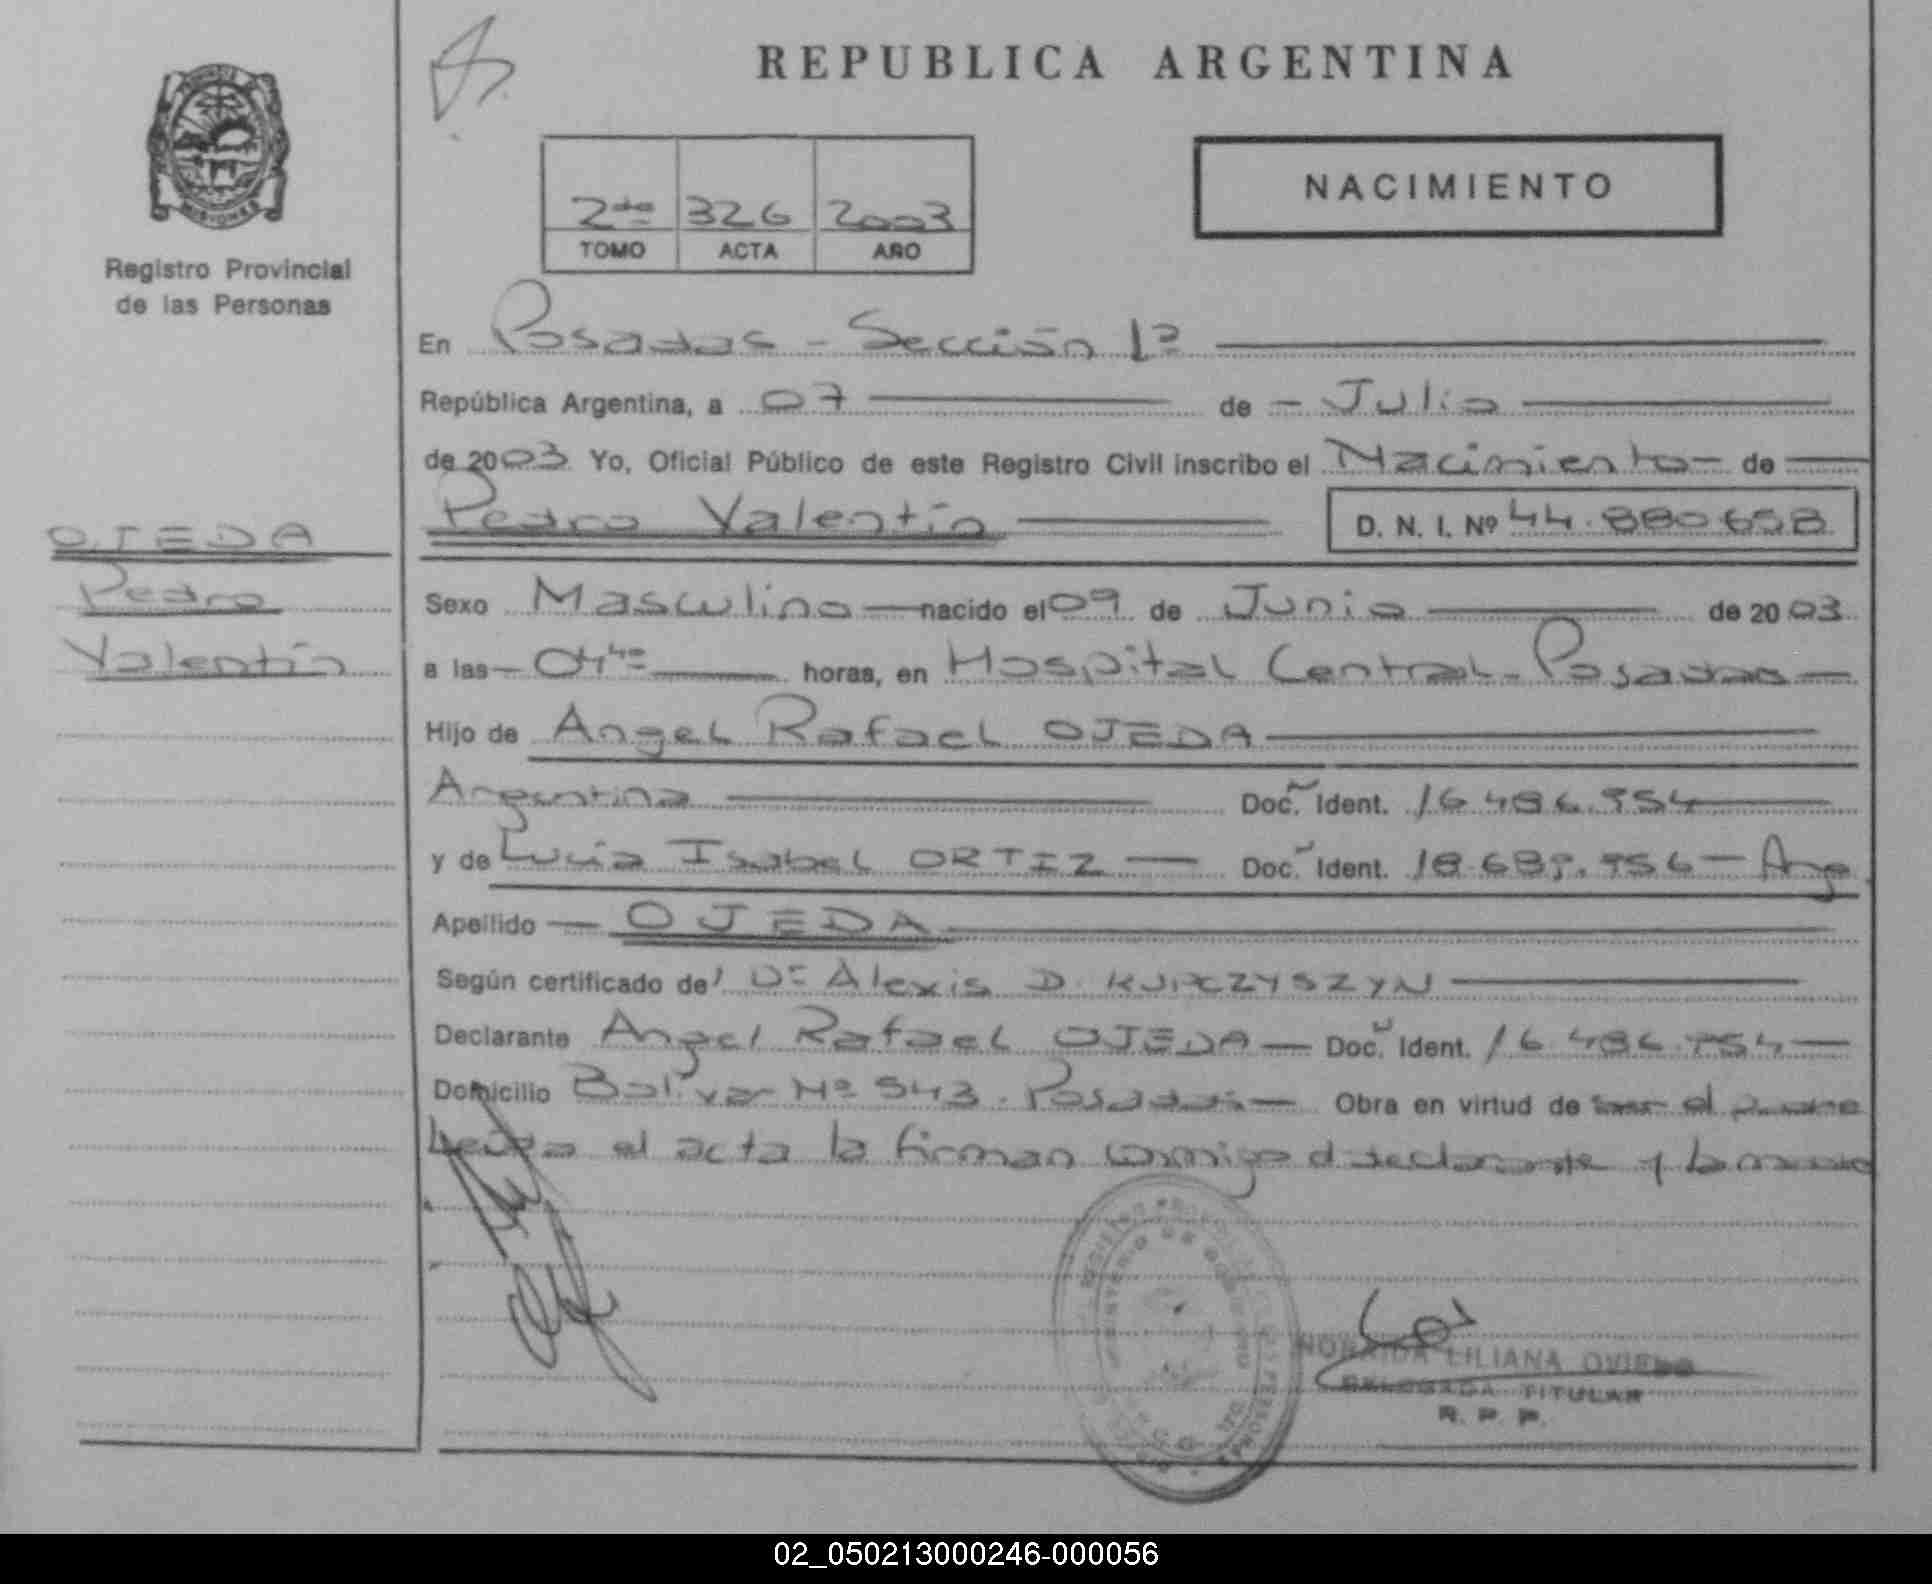 REPUBLICA ARGENTINA
NACIMIENTO
2do 326 2003
TOMO ACTA AÑO
MISIONES
Registro Provincial
de las Personas
En Posadas - Sección 1ª
República Argentina, a 07 de - Julio
de 2003 Yo, Oficial Público de este Registro Civil inscribo el Nacimiento - de
Pedro Valentín D. N. I. Nº 44.880.658
OJEDA
Pedro
Valentín
Sexo Masculino nacido el 09 de Junio de 2003
a las - 04 40 horas, en Hospital Central - Posadas
Hijo de Angel Rafael OJEDA
Argentina Doc. Ident. 16.486.954
y de Lucia Isabel ORTIZ Doc. Ident. 18.689.956 - Arg
Apellido OJEDA
Según certificado de Dr Alexis D. KUPCZYSZYN
Declarante Angel Rafael OJEDA Doc. Ident. 16.486.954
Domicilio Bolivar Nº 543. Posadas Obra en virtud de ser el padre
Leida el acta la firman conmigo el declarante y la madre
NORAIDA LILIANA OVIEDO
DELEGADA TITULAR
R. P. P.
02_050213000246-000056